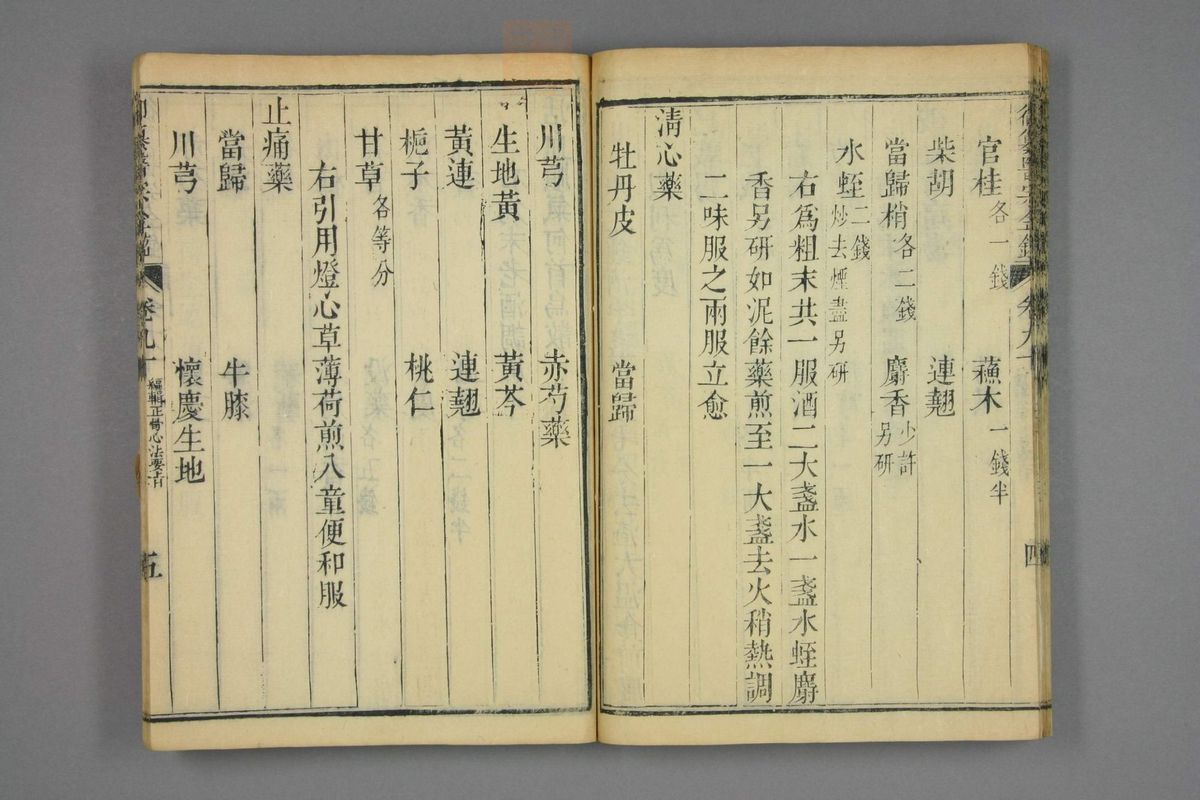 官桂各一錢　蘇木一錢半
柴胡　連翹
當歸梢各二錢　麝香少許另研
水蛭二錢炒去煙盡另研
右爲粗末共一服酒二大盞水一盞水蛭麝
香另研如泥餘藥煎至一大盞去火稍熱調
二味服之兩服立愈
清心藥
牡丹皮　當歸
川芎　赤芍藥
生地黃　黃芩
黃連　連翹
梔子　桃仁
甘草各等分
右引用燈心草薄荷煎入童便和服
止痛藥
當歸　牛膝
川芎　懷慶生地
卷九十　編輯正骨心法要旨　五